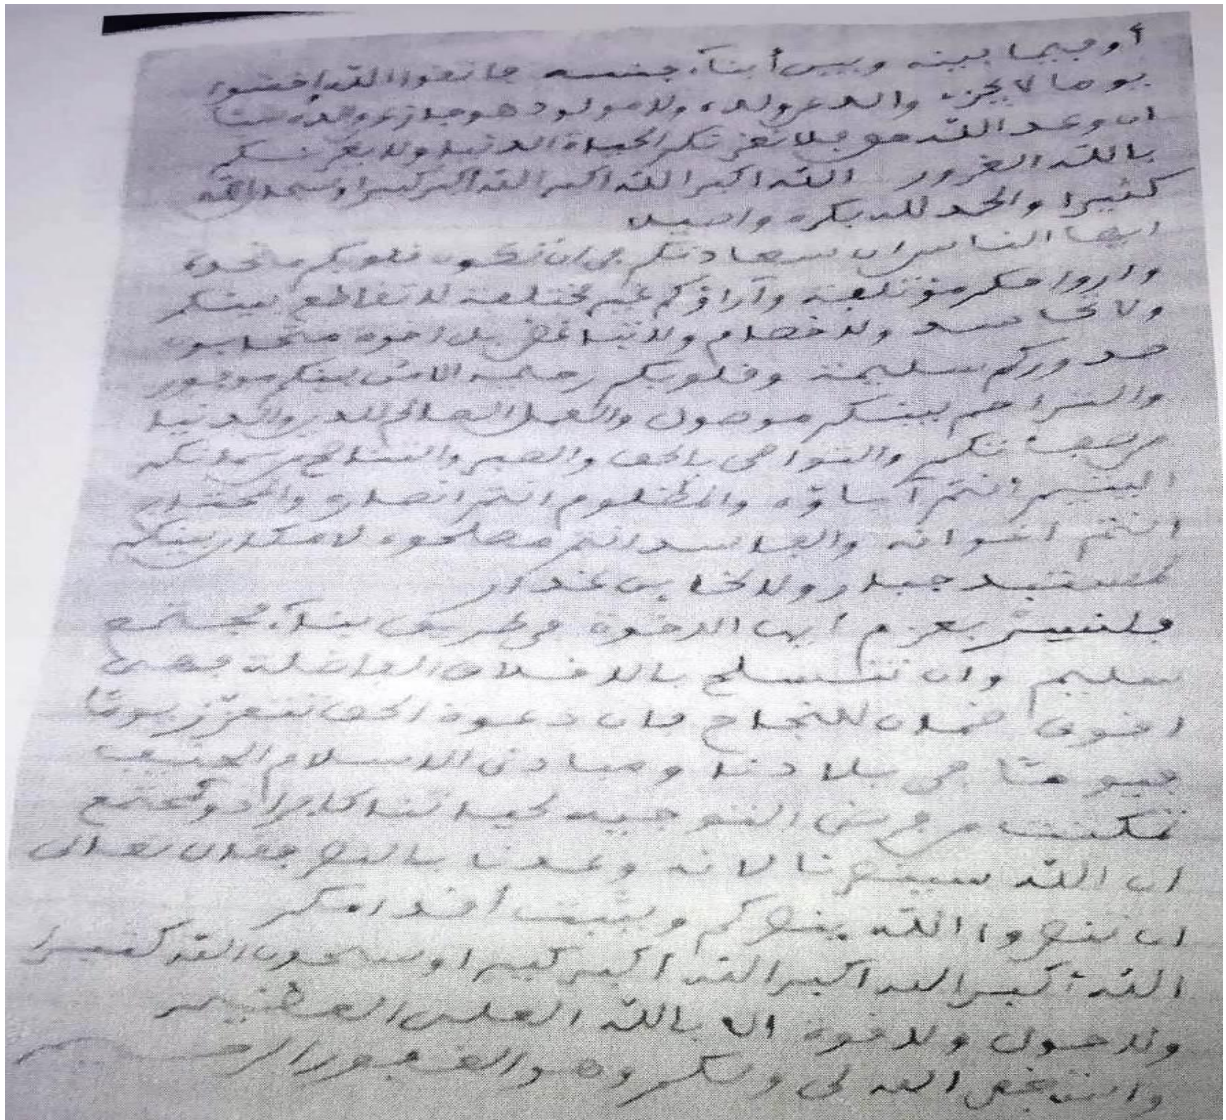 أو فيما بينه وبين أبناء جنسه فاتقوا الله واخشوا
يوما لا يجزي والد عن ولده ولا مولود هو جاز عن والده شيئا
ان وعد الله حق فلا تغرنكم الحياة الدنيا ولا يغرنكم
بالله الغرور الله اكبر الله اكبر الله اكبر كبيرا وسبحان الله
كثيرا والحمد لله بكرة واصيلا
ايها الناس ان سعادتكم في ان تكون قلوبكم متحدة
وارواحكم مؤتلفة وآراؤكم غير مختلفة لا تقاطع بينكم
ولا تحاسد ولا خصام ولا تباغض بل اخوة متحابون
صدوركم سليمة وقلوبكم رحيمة الامن بينكم موفور
والتراحم بينكم موصول والعمل الصالح للدين والدنيا
من صفاتكم والتواصي بالحق والصبر والتسامح من سماتكم
اليتيم انتم آساؤه والمظلوم انتم انصاره والمحتاج
انتم اخوانه والفاسد انتم مصلحوه لا مكان بينكم
لمستبد جبار ولا لخائن غدار
فلنسر بعزم أيها الاخوة في طريق بناء مجتمع
سليم وان نتسلح بالاخلاق الفاضلة فهي
اقوى ضمان للنجاح فان دعوة الحق تتعزز يوما
فيوما في بلادنا ومبادئ الاسلام الحنيف
تمكنت من فرض التوجيه لحياتنا كافراد ومجتمع
ان الله سينصرنا لانه وعدنا بالنصر فقال تعالى
ان تنصروا الله ينصركم ويثبت أقدامكم
الله أكبر الله اكبر الله أكبر كبيرا وسبحان الله كثيرا
ولا حول ولا قوة الا بالله العلي العظيم
والله يغفر لي ولكم وهو الغفور الرحيم